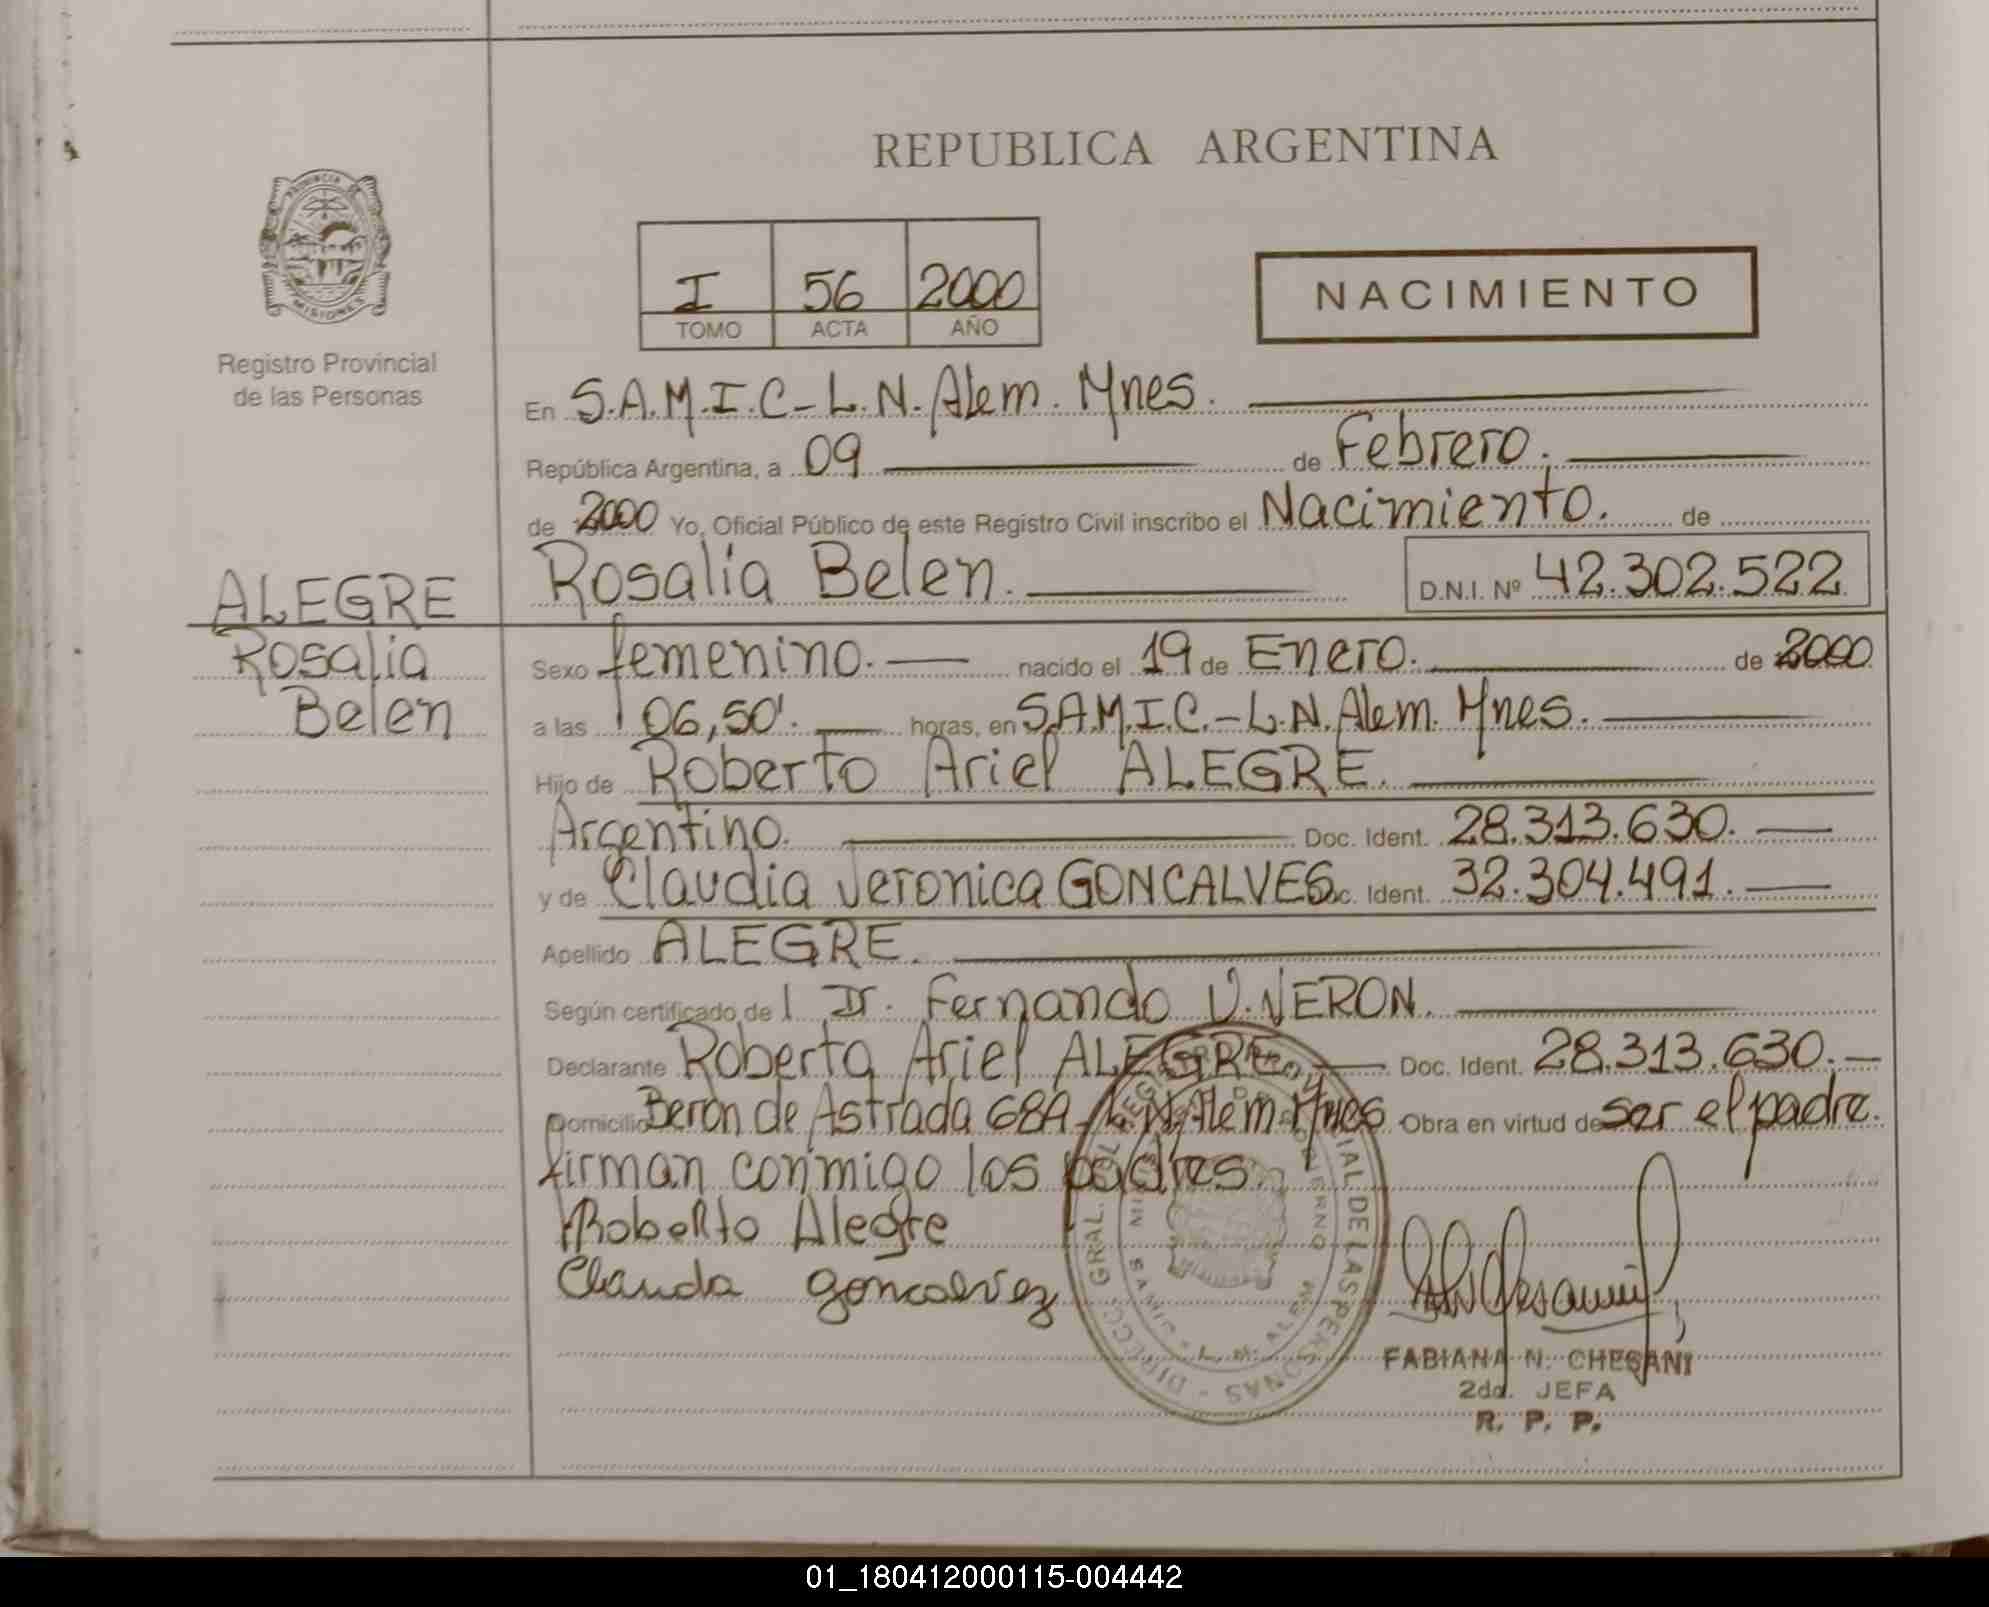 REPUBLICA ARGENTINA
PROVINCIA DE
MISIONES
I 56 2000
TOMO ACTA AÑO
NACIMIENTO
Registro Provincial
de las Personas
En S.A.M.I.C-L.N.Alem. Mnes.
República Argentina, a 09 de Febrero.
de 2000 Yo, Oficial Público de este Registro Civil inscribo el Nacimiento. de
Rosalia Belen. D.N.I. Nº 42.302.522
ALEGRE
Rosalia
Belen
Sexo femenino. nacido el 19 de Enero. de 2000
a las 06,50'. horas, en S.A.M.I.C.-L.N.Alem. Mnes.
Hijo de Roberto Ariel ALEGRE.
Argentino. Doc. Ident. 28.313.630.
y de Claudia Veronica GONCALVES Doc. Ident. 32.304.491.
Apellido ALEGRE.
Según certificado de l Dr. Fernando V. VERON.
Declarante Roberto Ariel ALEGRE Doc. Ident. 28.313.630.
Domicilio Beron de Astrada 689 L.N.Alem Mnes Obra en virtud de ser el padre.
firman conmigo los padres.
Roberto Alegre
Clauda goncalvez
FABIANA N. CHESANI
2da. JEFA
R. P. P.
01_180412000115-004442